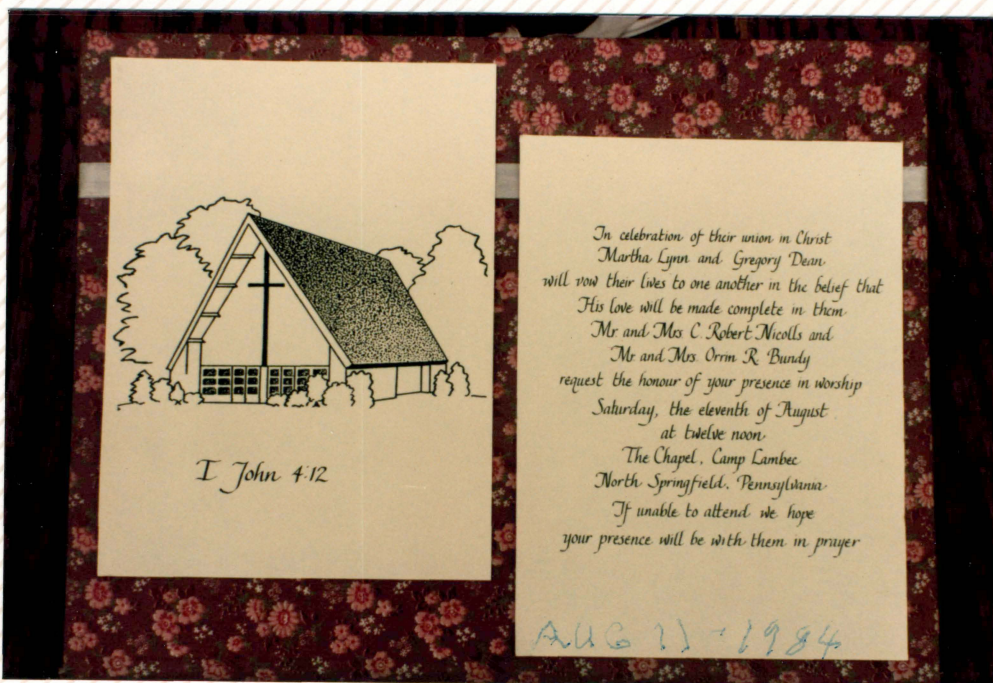 I John 4:12
In celebration of their union in Christ
Martha Lynn and Gregory Dean
will vow their lives to one another in the belief that
His love will be made complete in them.
Mr. and Mrs. C. Robert Nicolls and
Mr. and Mrs. Orrin R. Bundy
request the honour of your presence in worship
Saturday, the eleventh of August
at twelve noon.
The Chapel, Camp Lambec
North Springfield, Pennsylvania.
If unable to attend we hope
your presence will be with them in prayer
AUG 11-1984